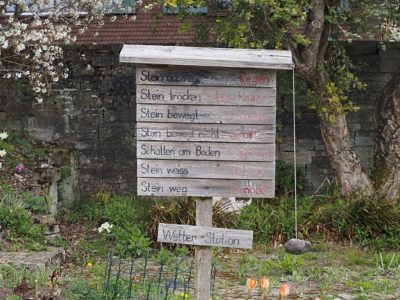 Stein nass Regen
Stein trocken kein Regen
Stein bewegt
Stein bewegt nicht windstill
Schatten am Boden
Stein weiss
Stein weg
Wetter-Station